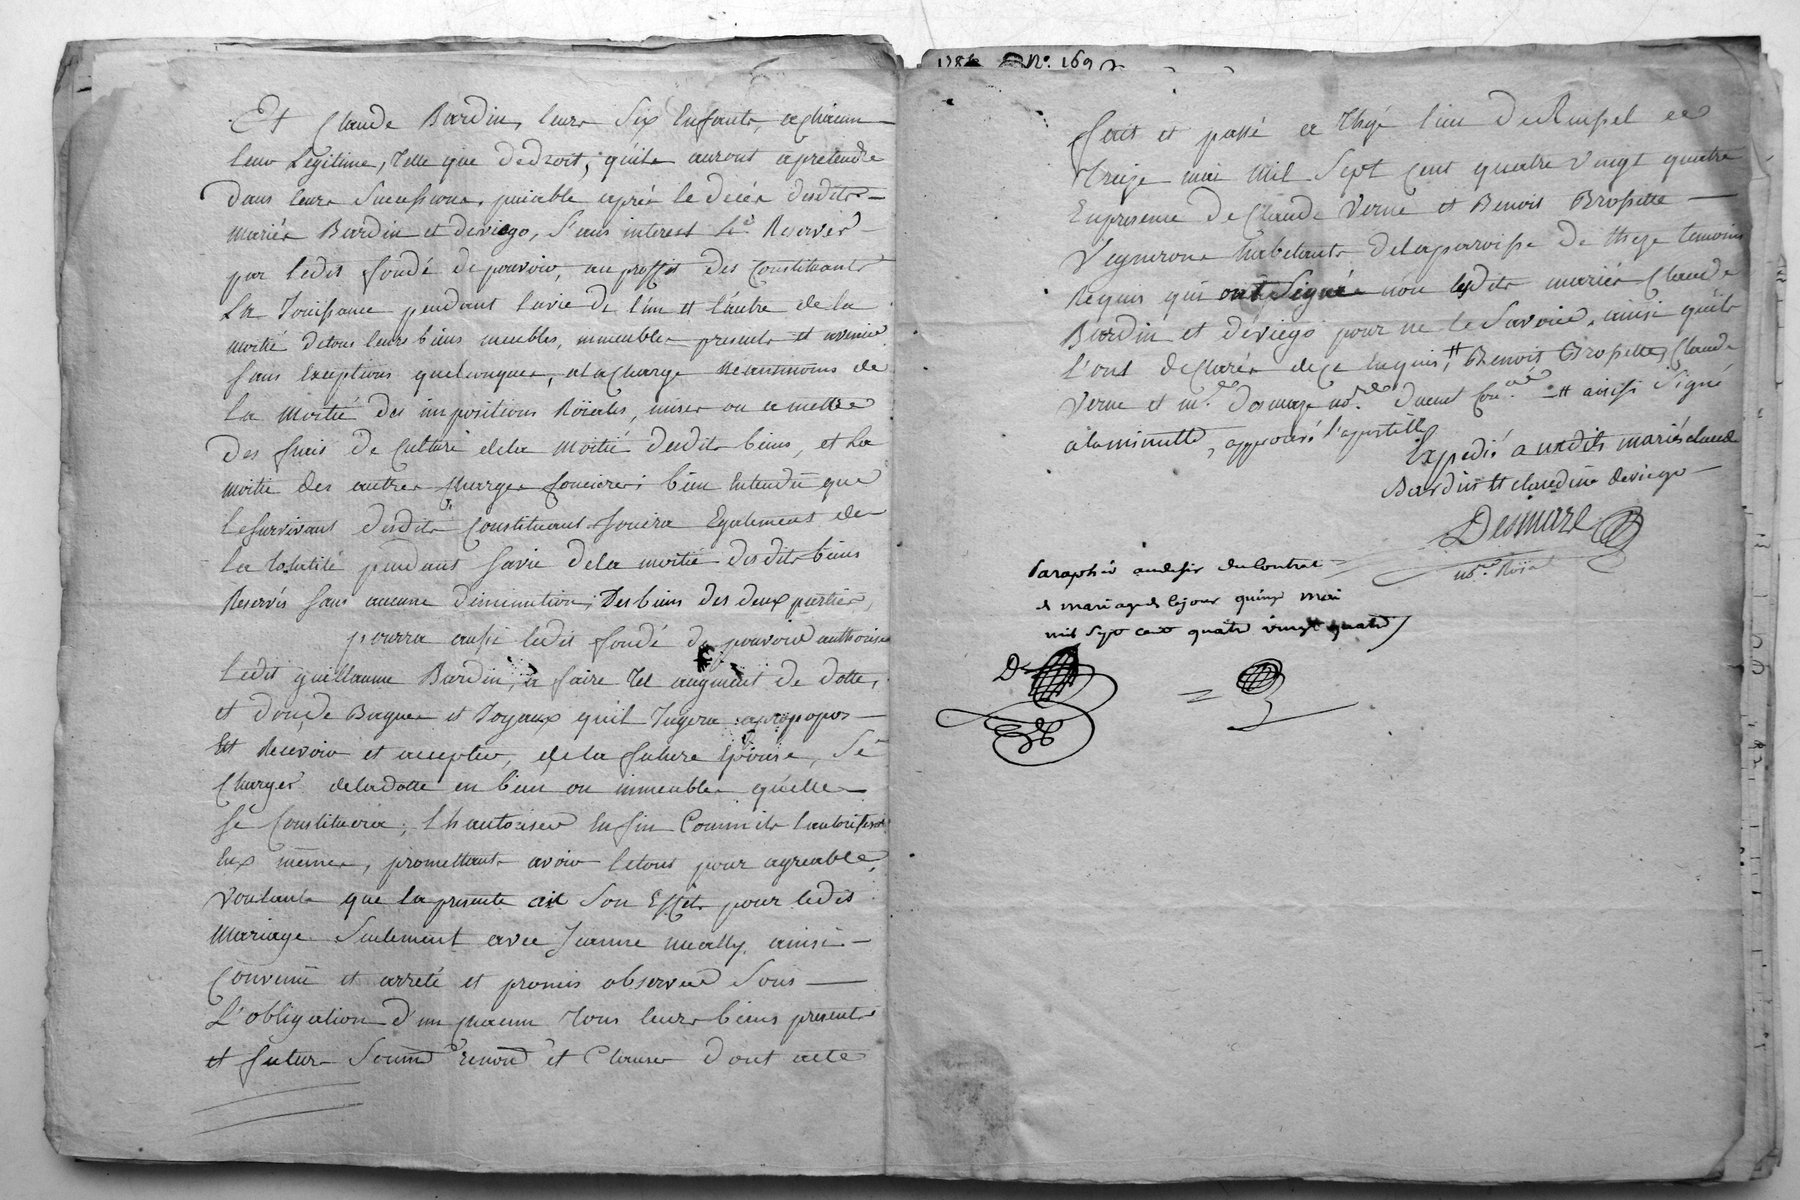 Et Claude Bardin, leurs Six Enfants, a chacun
leur Legitime, telle que de droit, quils auront a pretendre
dans leurs Successions, paiable aprés le decés desdits
mariés Bardin et deviego, Sans interest Se Reserver
par ledit fondé de pouvoir, au proffit des Constituants
La Jouissance pendant la vie de l'un et l'autre de la
moitié de tous leurs biens meubles, immeubles presents et avenir
sans Exceptions quelconques, a la Charge Neantmoins de
la moitié des impositions Roïales, mises ou a mettre
des frais de Culture de la moitié desdits biens, et la
moitié des autres Charges foncieres; bien Entendû que
le survivant desdits Constituant Jouira Egalement de
la totalité pendant sa vie de la moitié desdits biens
Reservés sans aucune diminution; Des biens des deux parties,
pourra aussi ledit fondé de pouvoir authoriser
ledit guillaume Bardin, a faire tel augment de dotte,
et don de Bagues et Joyaux quil Jugera apropopos
Et Recevoir et accepter, de la future Epouse, Se
Charger de la dotte en bien ou immeubles qu'elle
se Constituera; L'hautoriser Enfin Comme ils l'autorisent
Eux mêmes, promettants avoir le tout pour agreable,
voulants que la presente ait Son Effet pour ledit
mariage Seulement avec Jeanne meally, ainsi
Convenû et arreté et promis observer Sous
L'obligation d'un chacun tous leurs biens presents
et futurs Soumon renon et Clauses dont acte
N°. 169
fait et passé a thézé lieu De Rupel le
treize mai mil Sept Cent quatre vingt quatre
En presence De Claude Verne et Benoit Brossette
Vignerons habitants de la paroisse de theze temoins
Requis qui ont Signé non lesdits mariés Claude
Bardin et déviego pour ne le Savoir, ainsi quils
l'ont declarés de ce Enquis, # Benoit Brossette, Claude
Verne et m.e Desmaze no.re # ainsi Signé
a la minutte, approuvé l'apostille
Expedié auxdits mariés claude
Bardin et claudine deviego
Desmaze
no.re Roïal
Paraphée au desir du Contrat
de mariage de ce jour quinze mai
mil Sept cent quatre vingt quatre